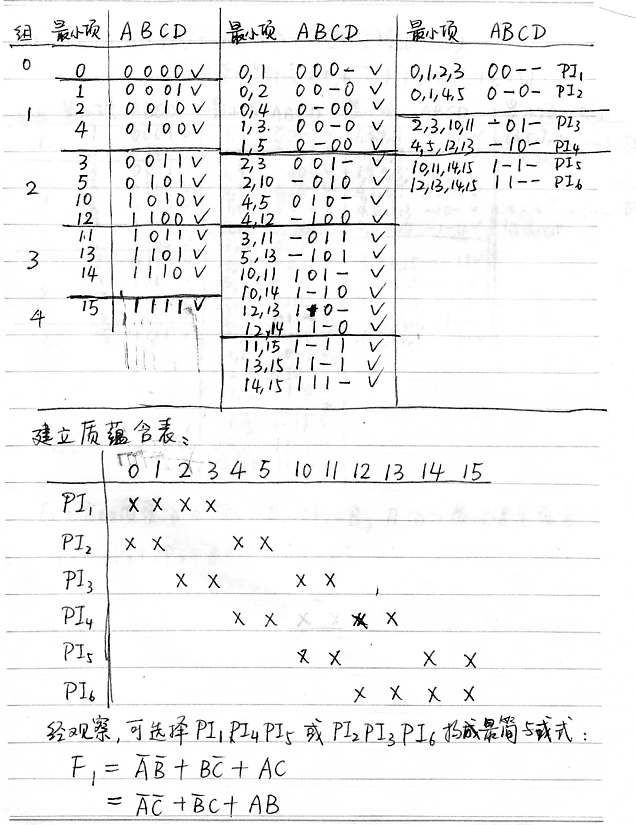 组 最小项 A B C D 最小项 A B C D 最小项 A B C D
0 0 0 0 0 0 ✓ 0,1 0 0 0 – ✓ 0,1,2,3 0 0 – – PI₁
1 1 0 0 0 1 ✓ 0,2 0 0 – 0 ✓ 0,1,4,5 0 – 0 – PI₂
2 0 0 1 0 ✓ 0,4 0 – 0 0 ✓ 2,3,10,11 – 0 1 – PI₃
4 0 1 0 0 ✓ 1,3. 0 0 – 0 ✓ 4,5,12,13 – 1 0 – PI₄
1,5 0 – 0 0 ✓ 10,11,14,15 1 – 1 – PI₅
2 3 0 0 1 1 ✓ 2,3 0 0 1 – ✓ 12,13,14,15 1 1 – – PI₆
5 0 1 0 1 ✓ 2,10 – 0 1 0 ✓
10 1 0 1 0 ✓ 4,5 0 1 0 – ✓
12 1 1 0 0 ✓ 4,12 – 1 0 0 ✓
3 11 1 0 1 1 ✓ 3,11 – 0 1 1 ✓
13 1 1 0 1 ✓ 5,13 – 1 0 1 ✓
14 1 1 1 0 ✓ 10,11 1 0 1 – ✓
10,14 1 – 1 0 ✓
4 15 1 1 1 1 ✓ 12,13 1 1 0 – ✓
12,14 1 1 – 0 ✓
11,15 1 – 1 1 ✓
13,15 1 1 – 1 ✓
14,15 1 1 1 – ✓
建立质蕴含表:
0 1 2 3 4 5 10 11 12 13 14 15
PI₁ × × × ×
PI₂ × × × ×
PI₃ × × × ×
PI₄ × × × ×
PI₅ × × × ×
PI₆ × × × ×
经观察,可选择PI₁PI₄PI₅或PI₂PI₃PI₆构成最简与或式:
F₁ = A̅B̅ + BC̅ + AC
= A̅C̅ + B̅C + AB